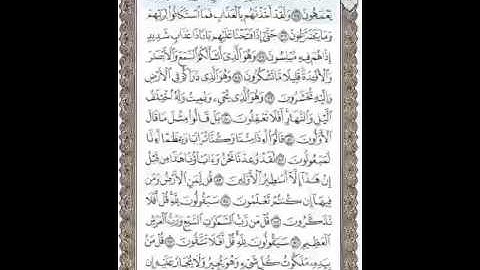 يَعْمَهُونَ ۝ وَلَقَدْ أَخَذْنَٰهُم بِٱلْعَذَابِ فَمَا ٱسْتَكَانُوا۟ لِرَبِّهِمْ
وَمَا يَتَضَرَّعُونَ ۝ حَتَّىٰٓ إِذَا فَتَحْنَا عَلَيْهِم بَابًا ذَا عَذَابٍ شَدِيدٍ
إِذَا هُمْ فِيهِ مُبْلِسُونَ ۝ وَهُوَ ٱلَّذِىٓ أَنشَأَ لَكُمُ ٱلسَّمْعَ وَٱلْأَبْصَٰرَ
وَٱلْأَفْـِٔدَةَ قَلِيلًا مَّا تَشْكُرُونَ ۝ وَهُوَ ٱلَّذِى ذَرَأَكُمْ فِى ٱلْأَرْضِ
وَإِلَيْهِ تُحْشَرُونَ ۝ وَهُوَ ٱلَّذِى يُحْىِۦ وَيُمِيتُ وَلَهُ ٱخْتِلَٰفُ
ٱلَّيْلِ وَٱلنَّهَارِ أَفَلَا تَعْقِلُونَ ۝ بَلْ قَالُوا۟ مِثْلَ مَا قَالَ
ٱلْأَوَّلُونَ ۝ قَالُوٓا۟ أَءِذَا مِتْنَا وَكُنَّا تُرَابًا وَعِظَٰمًا أَءِنَّا
لَمَبْعُوثُونَ ۝ لَقَدْ وُعِدْنَا نَحْنُ وَءَابَآؤُنَا هَٰذَا مِن قَبْلُ
إِنْ هَٰذَآ إِلَّآ أَسَٰطِيرُ ٱلْأَوَّلِينَ ۝ قُل لِّمَنِ ٱلْأَرْضُ وَمَن
فِيهَآ إِن كُنتُمْ تَعْلَمُونَ ۝ سَيَقُولُونَ لِلَّهِ قُلْ أَفَلَا
تَذَكَّرُونَ ۝ قُلْ مَن رَّبُّ ٱلسَّمَٰوَٰتِ ٱلسَّبْعِ وَرَبُّ ٱلْعَرْشِ
ٱلْعَظِيمِ ۝ سَيَقُولُونَ لِلَّهِ قُلْ أَفَلَا تَتَّقُونَ ۝ قُلْ مَنۢ
بِيَدِهِۦ مَلَكُوتُ كُلِّ شَىْءٍ وَهُوَ يُجِيرُ وَلَا يُجَارُ عَلَيْهِ إِن